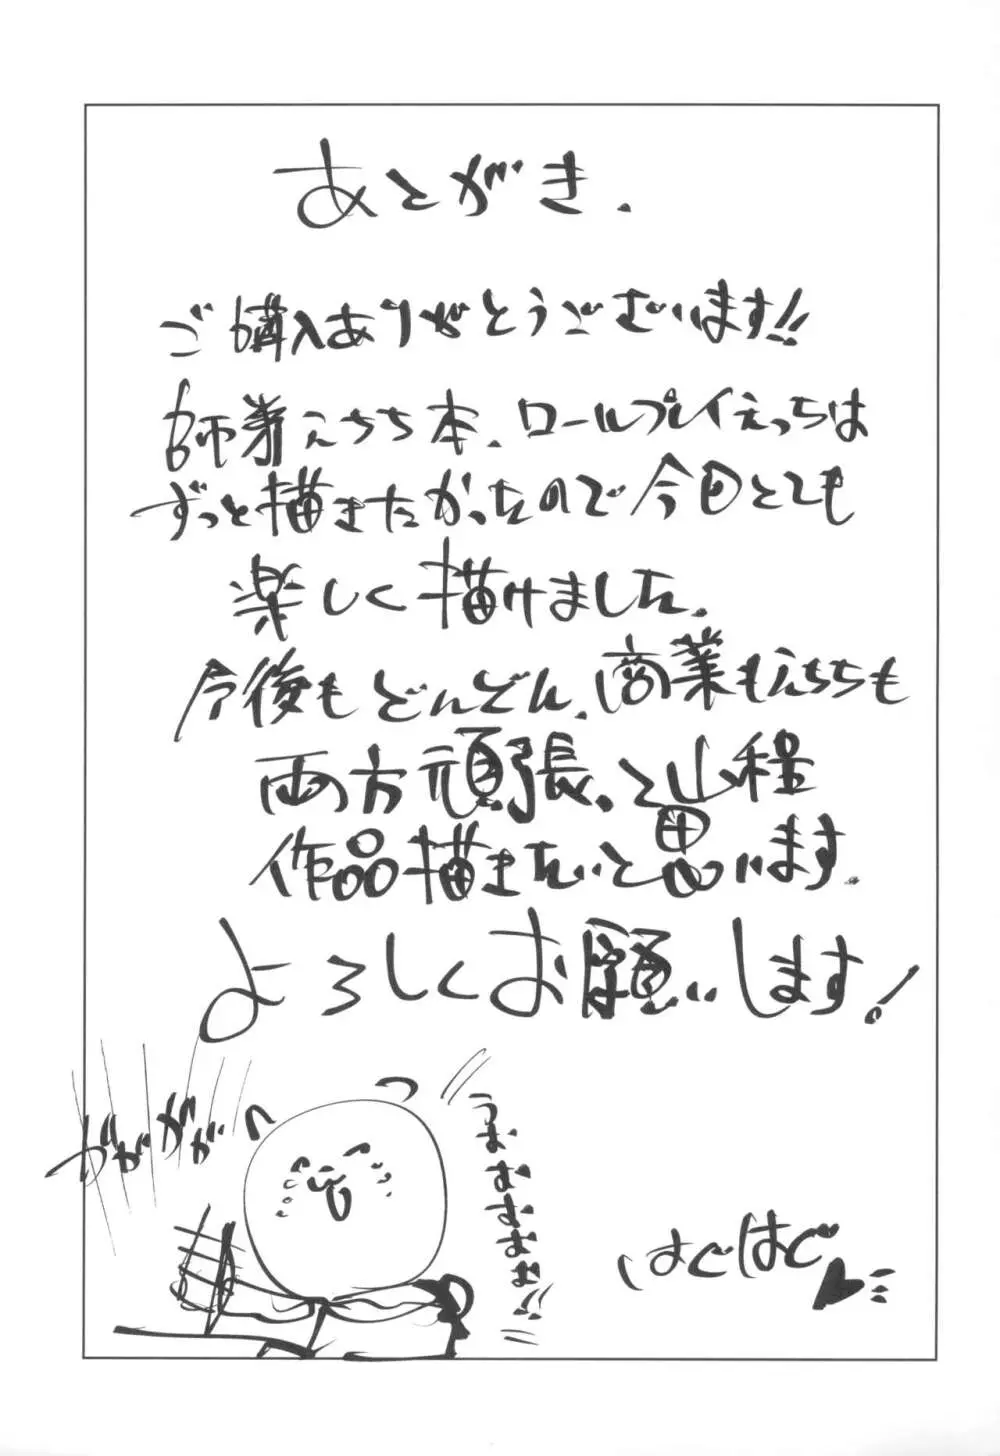 あとがき.
ご購入ありがとうございます!!
師弟えちち本、ロールプレイえっちは
ずっと描きたかったので今回とても
楽しく描けました。
今後もどんどん、商業もえちちも
両方頑張、て山程
作品描きたいと思います。
よろしくお願いします!
ががががが
うおおおおお!!
はぐはぐ